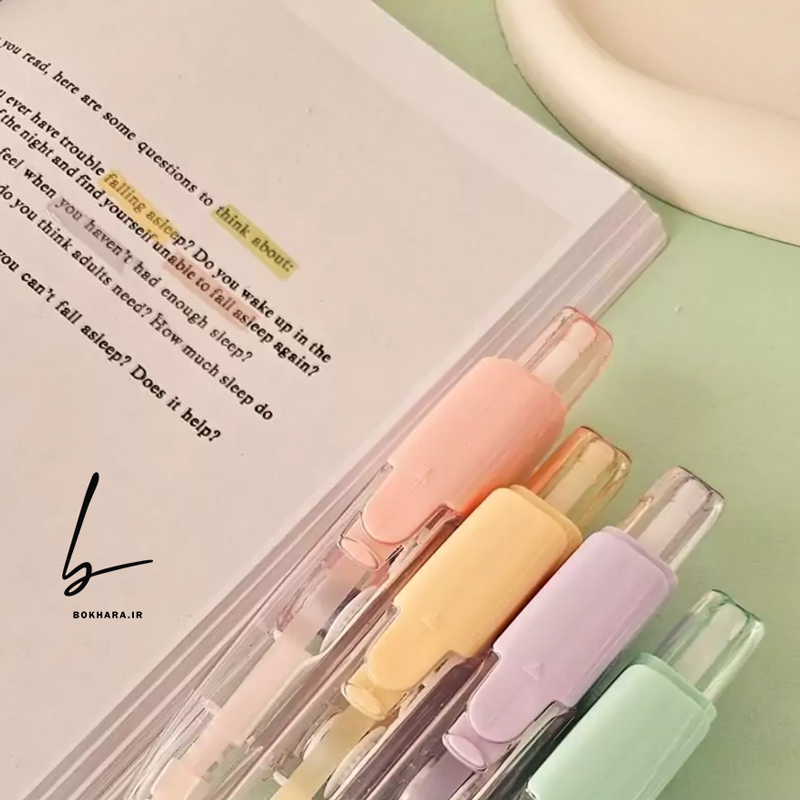 you read, here are some questions to think about:
ever have trouble falling asleep? Do you wake up in the
of the night and find yourself unable to fall asleep again?
feel when you haven't had enough sleep?
do you think adults need? How much sleep do
you can't fall asleep? Does it help?
b
BOKHARA.IR